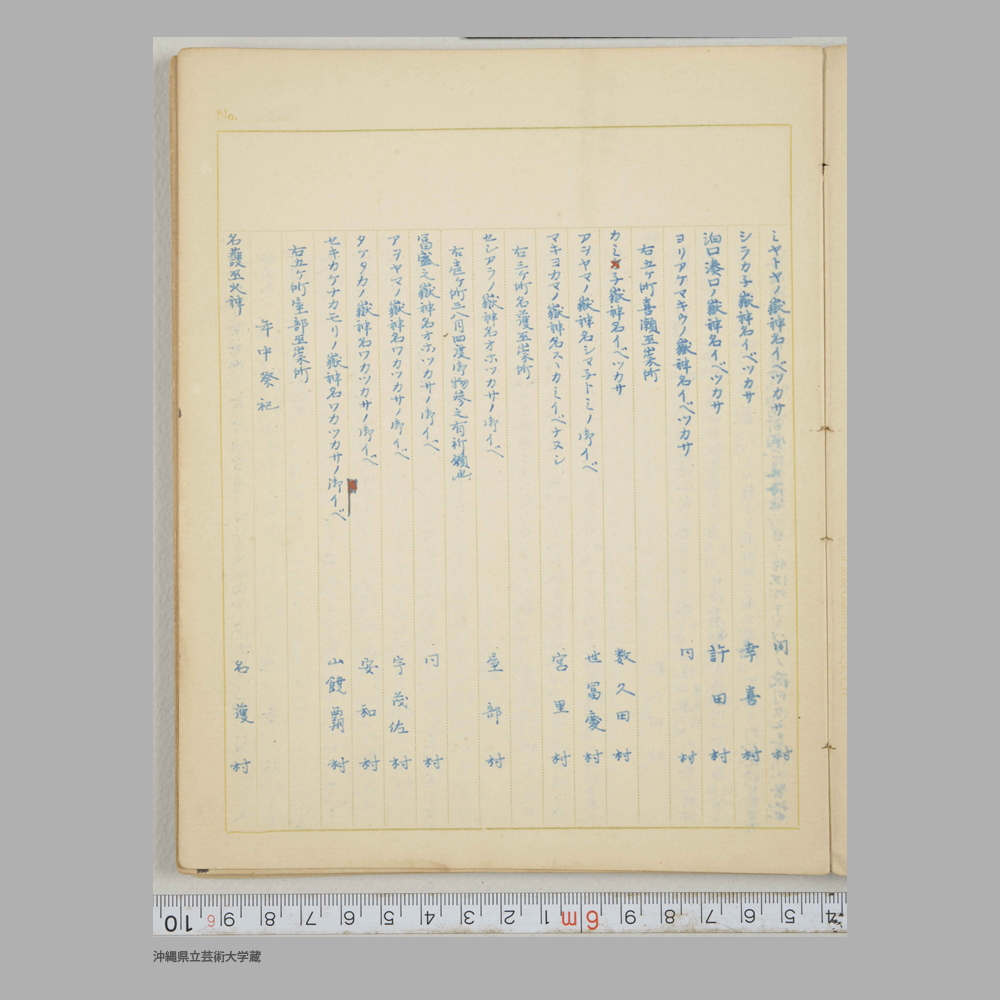 No.
ミヤトヤノ嶽神名イベツカサ 同 村
シラカ子嶽神名イベツカサ 幸喜村
泊口湊口ノ嶽神名イベツカサ 許田村
ヨリアケマキウノ嶽神名イベツカサ 同 村
右五ヶ所喜瀬巫崇所
カミ子嶽神名イベツカサ 数久田村
アヲヤマノ嶽神名シマ子トミノ御イベ 世冨慶村
マキヨカマノ嶽神名スヽカミイベナヌシ 宮里村
右三ヶ所名護巫崇所
センアラノ嶽神名オホツカサノ御イベ 屋部村
右壱ヶ所三八月四度御物参之有祈願也
冨盛之嶽神名オホツカサノ御イベ 同 村
アヲヤマノ嶽神名ワカツカサノ御イベ 宇茂佐村
タケタカノ嶽神名ワカツカサノ御イベ 安和村
セキカケナカモリノ嶽神名ワカツカサノ御イベ 山饒覇村
右五ヶ所屋部巫崇所
年中祭祀
名護巫火神 名護村
10 9 8 7 6 5 4 3 2 1 6m 9 8 7 6 5 4
沖縄県立芸術大学蔵